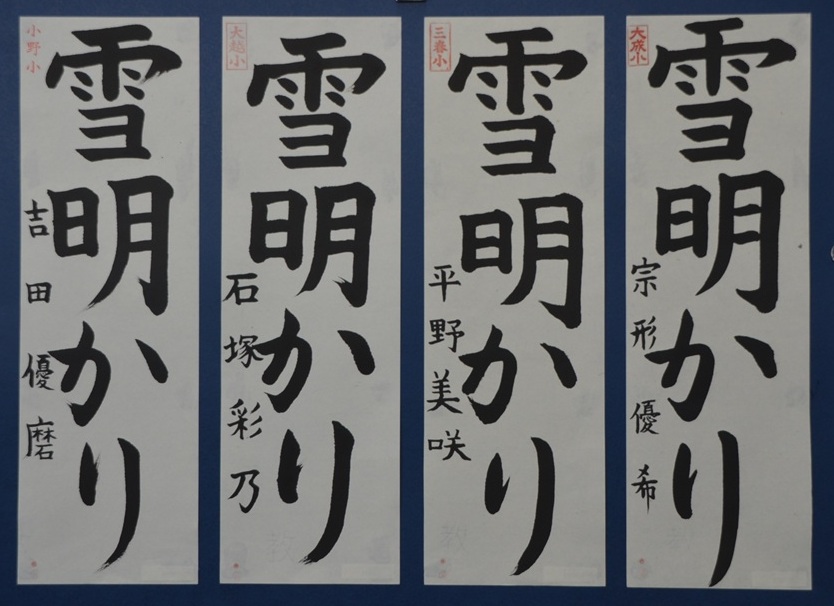 大成小
雪明かり
宗形優希
三春小
雪明かり
平野美咲
大越小
雪明かり
石塚彩乃
小野小
雪明かり
吉田優磨